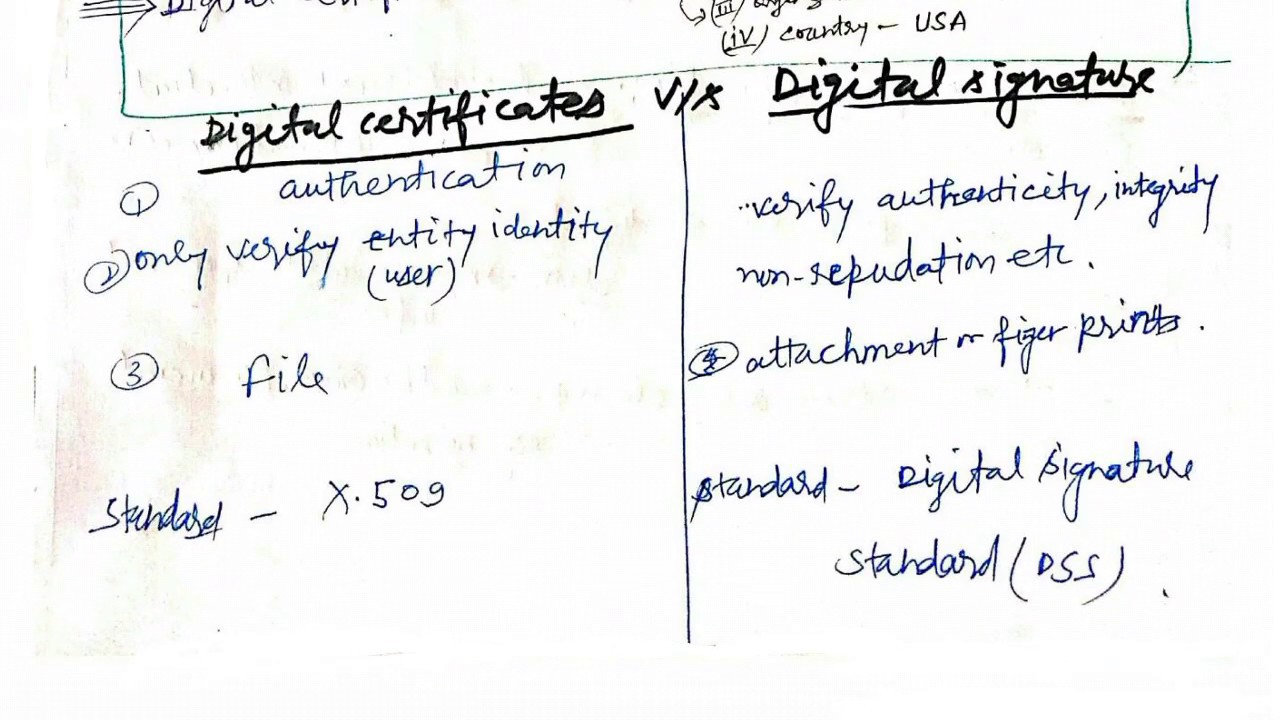 (iv) country - USA
Digital certificates V/s Digital signature
① authentication
② only verify entity identity
(user)
③ file
Standard - X.509
verify authenticity, integrity
non-repudation etc.
attachment or figer prints.
standard - Digital signature
standard (DSS)